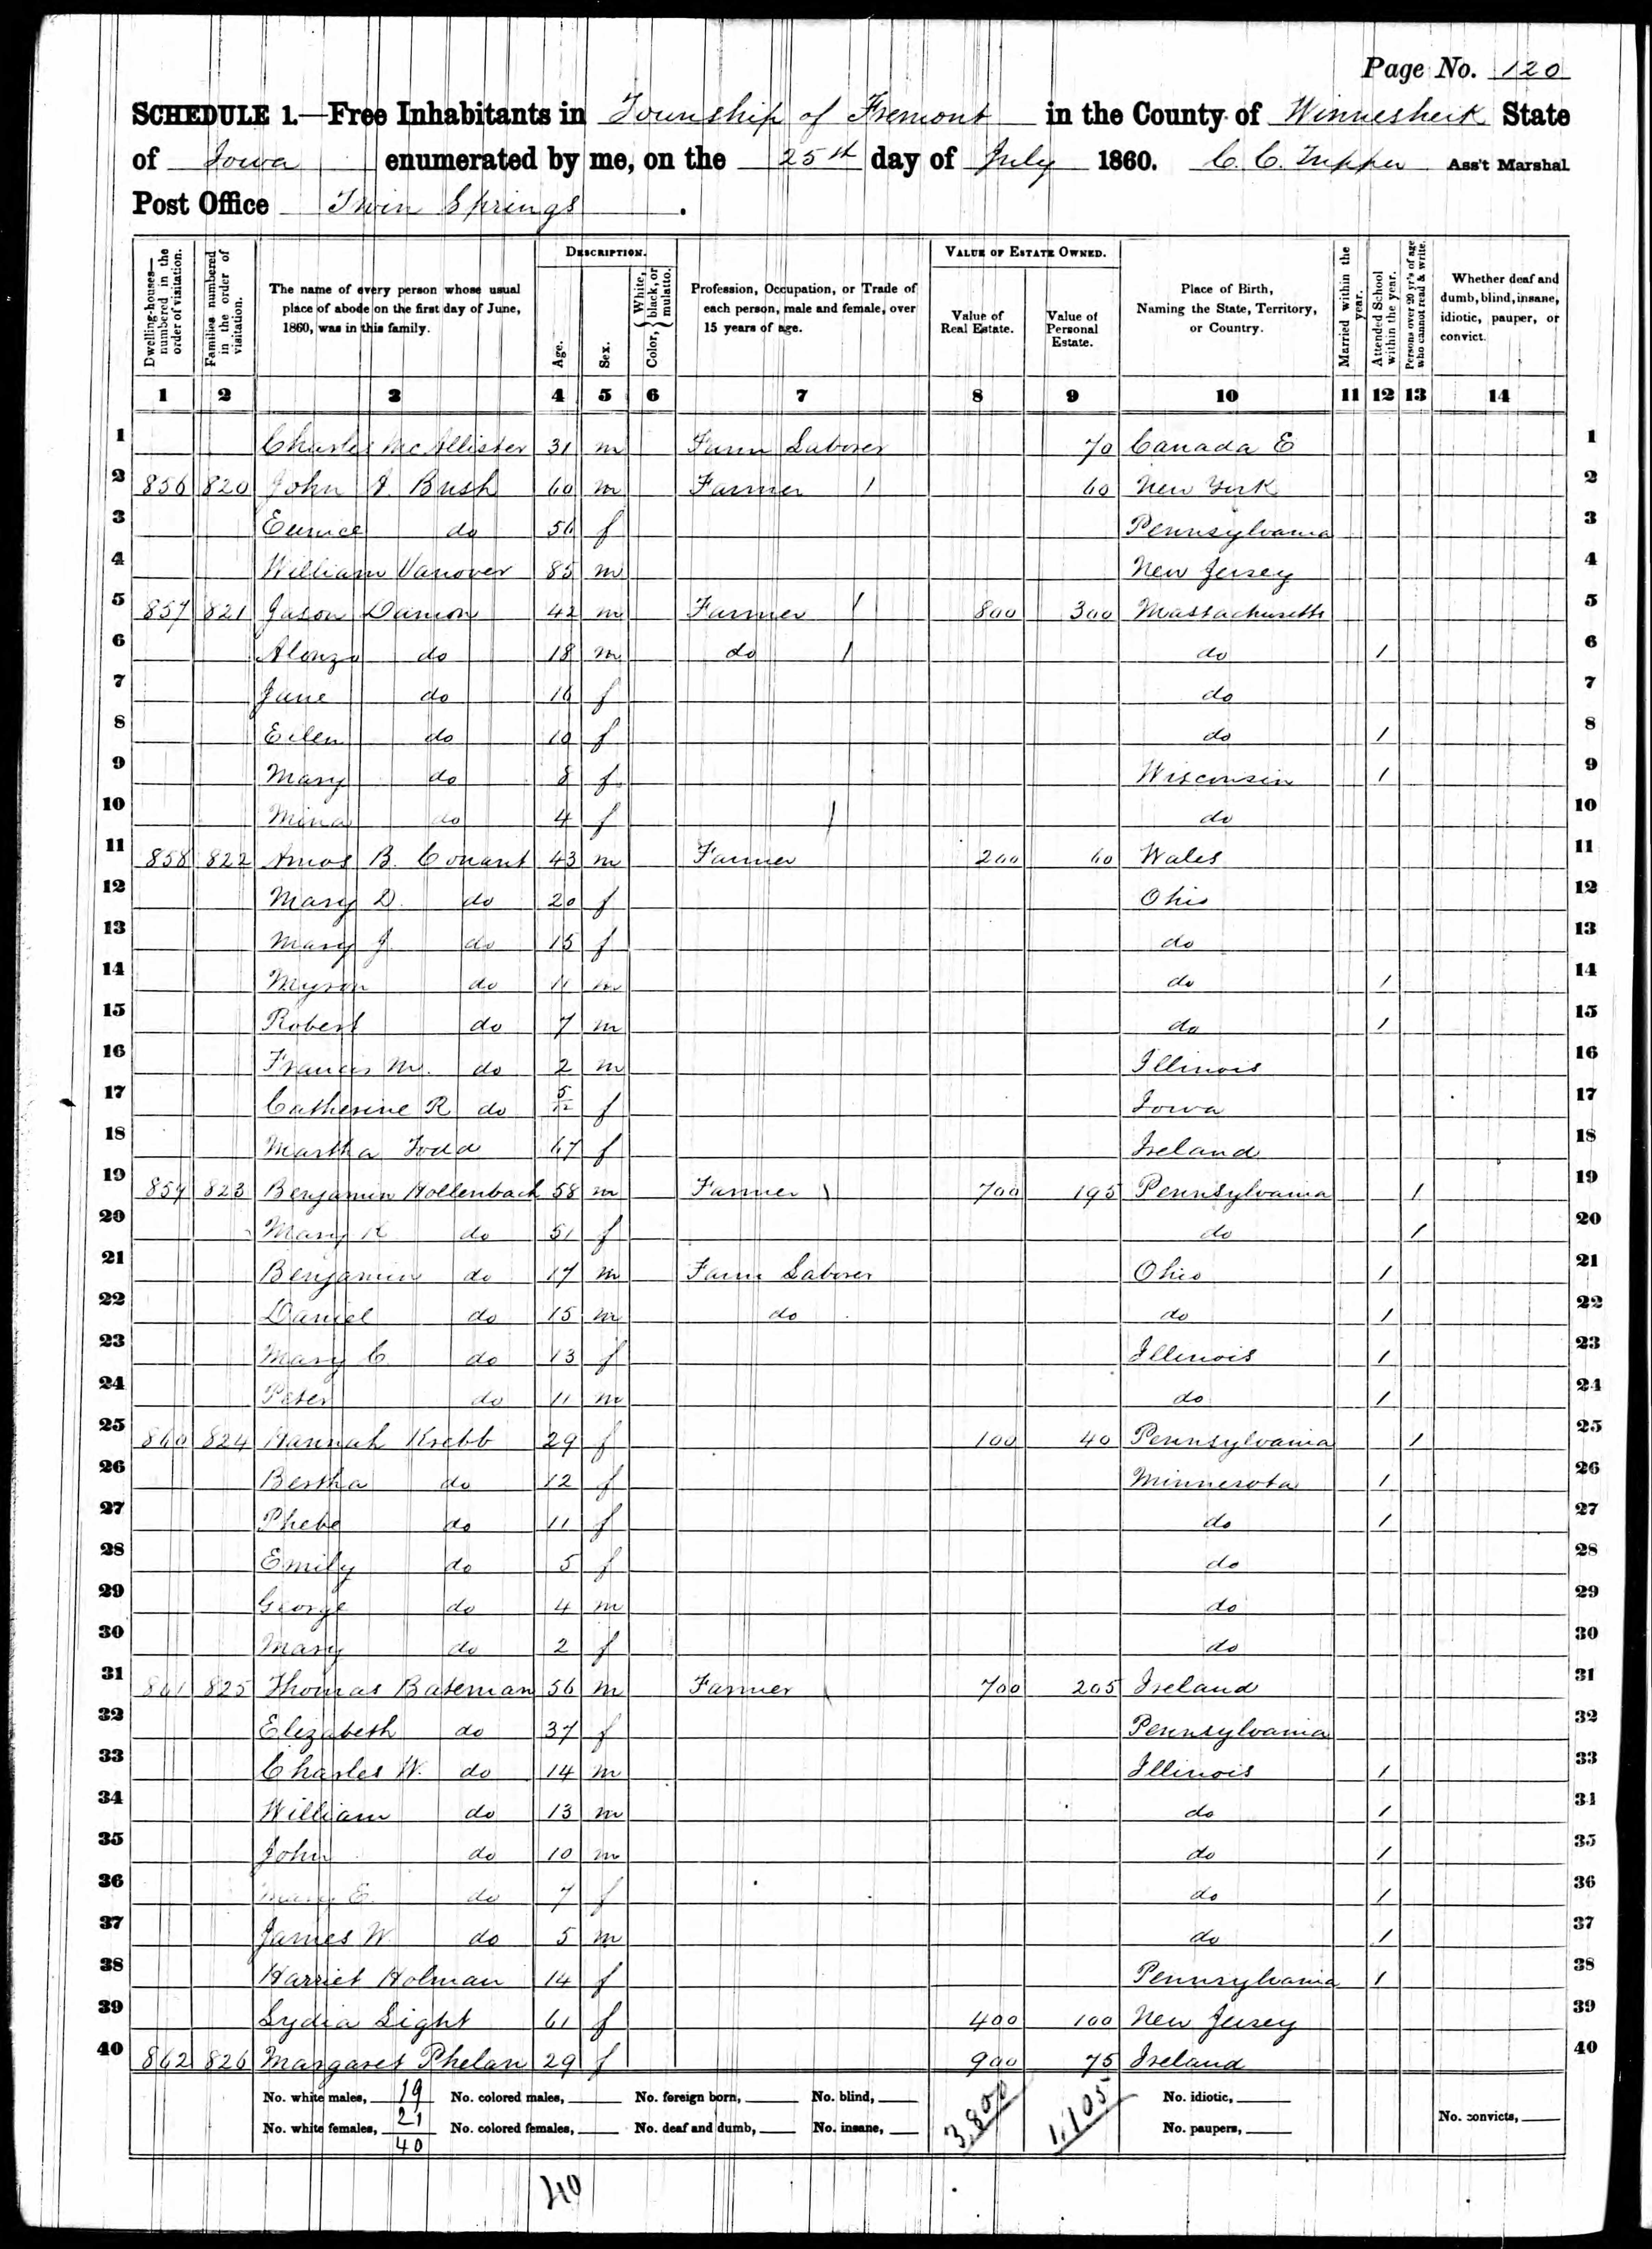 Page No. 120
SCHEDULE 1.—Free Inhabitants in Township of Fremont in the County of Winnesheik State
of Iowa enumerated by me, on the 25th day of July 1860. C. C. Tupper Ass't Marshal
Post Office Twin Springs.
Dwelling-houses—numbered in the order of visitation. Families numbered in the order of visitation. The name of every person whose usual place of abode on the first day of June, 1860, was in this family. DESCRIPTION. Age. Sex. Color, White, black, or mulatto. Profession, Occupation, or Trade of each person, male and female, over 15 years of age. VALUE OF ESTATE OWNED. Value of Real Estate. Value of Personal Estate. Place of Birth, Naming the State, Territory, or Country. Married within the year. Attended School within the year. Persons over 20 yr's of age who cannot read & write. Whether deaf and dumb, blind, insane, idiotic, pauper, or convict.
1 2 3 4 5 6 7 8 9 10 11 12 13 14
1 Charles McAllister 31 m Farm Laborer 70 Canada E 1
2 856 820 John J. Bush 60 m Farmer 1 60 New York 2
3 Eunice do 56 f Pennsylvania 3
4 William Vanover 85 m New Jersey 4
5 857 821 Jason Damon 42 m Farmer 1 800 300 Massachusetts 5
6 Alonzo do 18 m do 1 do 1 6
7 Jane do 16 f do 7
8 Ellen do 10 f do 1 8
9 Mary do 8 f Wisconsin 1 9
10 Mina do 4 f do 10
11 858 822 Amos B. Conant 43 m Farmer 200 60 Wales 11
12 Mary D. do 20 f Ohio 12
13 Mary J. do 15 f do 13
14 Myron do 11 m do 1 14
15 Robert do 7 m do 1 15
16 Francis M. do 2 m Illinois 16
17 Catherine R do 5/12 f Iowa 17
18 Martha Todd 67 f Ireland 18
19 859 823 Benjamin Hollenback 58 m Farmer 700 195 Pennsylvania 1 19
20 Mary K do 51 f do 1 20
21 Benjamin do 17 m Farm Laborer Ohio 1 21
22 Daniel do 15 m do do 1 22
23 Mary C. do 13 f Illinois 1 23
24 Peter do 11 m do 1 24
25 860 824 Hannah Krebb 29 f 100 40 Pennsylvania 1 25
26 Bertha do 12 f Minnesota 1 26
27 Phebe do 11 f do 1 27
28 Emily do 5 f do 28
29 George do 4 m do 29
30 Mary do 2 f do 30
31 861 825 Thomas Bateman 56 m Farmer 700 205 Ireland 31
32 Elizabeth do 37 f Pennsylvania 32
33 Charles W. do 14 m Illinois 1 33
34 William do 13 m do 1 34
35 John do 10 m do 1 35
36 Mary E. do 7 f do 1 36
37 James W. do 5 m do 1 37
38 Harriet Holman 14 f Pennsylvania 1 38
39 Lydia Light 61 f 400 100 New Jersey 39
40 862 826 Margaret Phelan 29 f 900 75 Ireland 40
No. white males, 19 No. colored males, No. foreign born, No. blind, 3,800 1,105 No. idiotic,
No. white females, 21 No. colored females, No. deaf and dumb, No. insane, No. paupers, No. convicts,
40
40